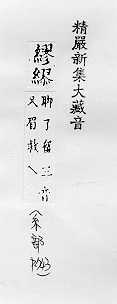 精嚴新集大藏音
繆
聊了留三音
又眉救
(糸部